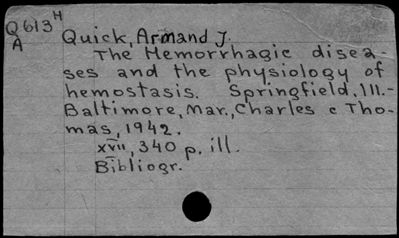 Q613H
A
Quick, Armand J.
The Hemorrhagic disea-
ses and the physiology of
hemostasis. Springfield, Ill.-
Baltimore, Mar., Charles c Tho-
mas, 1942.
xvii, 340 p. ill.
Bibliogr.